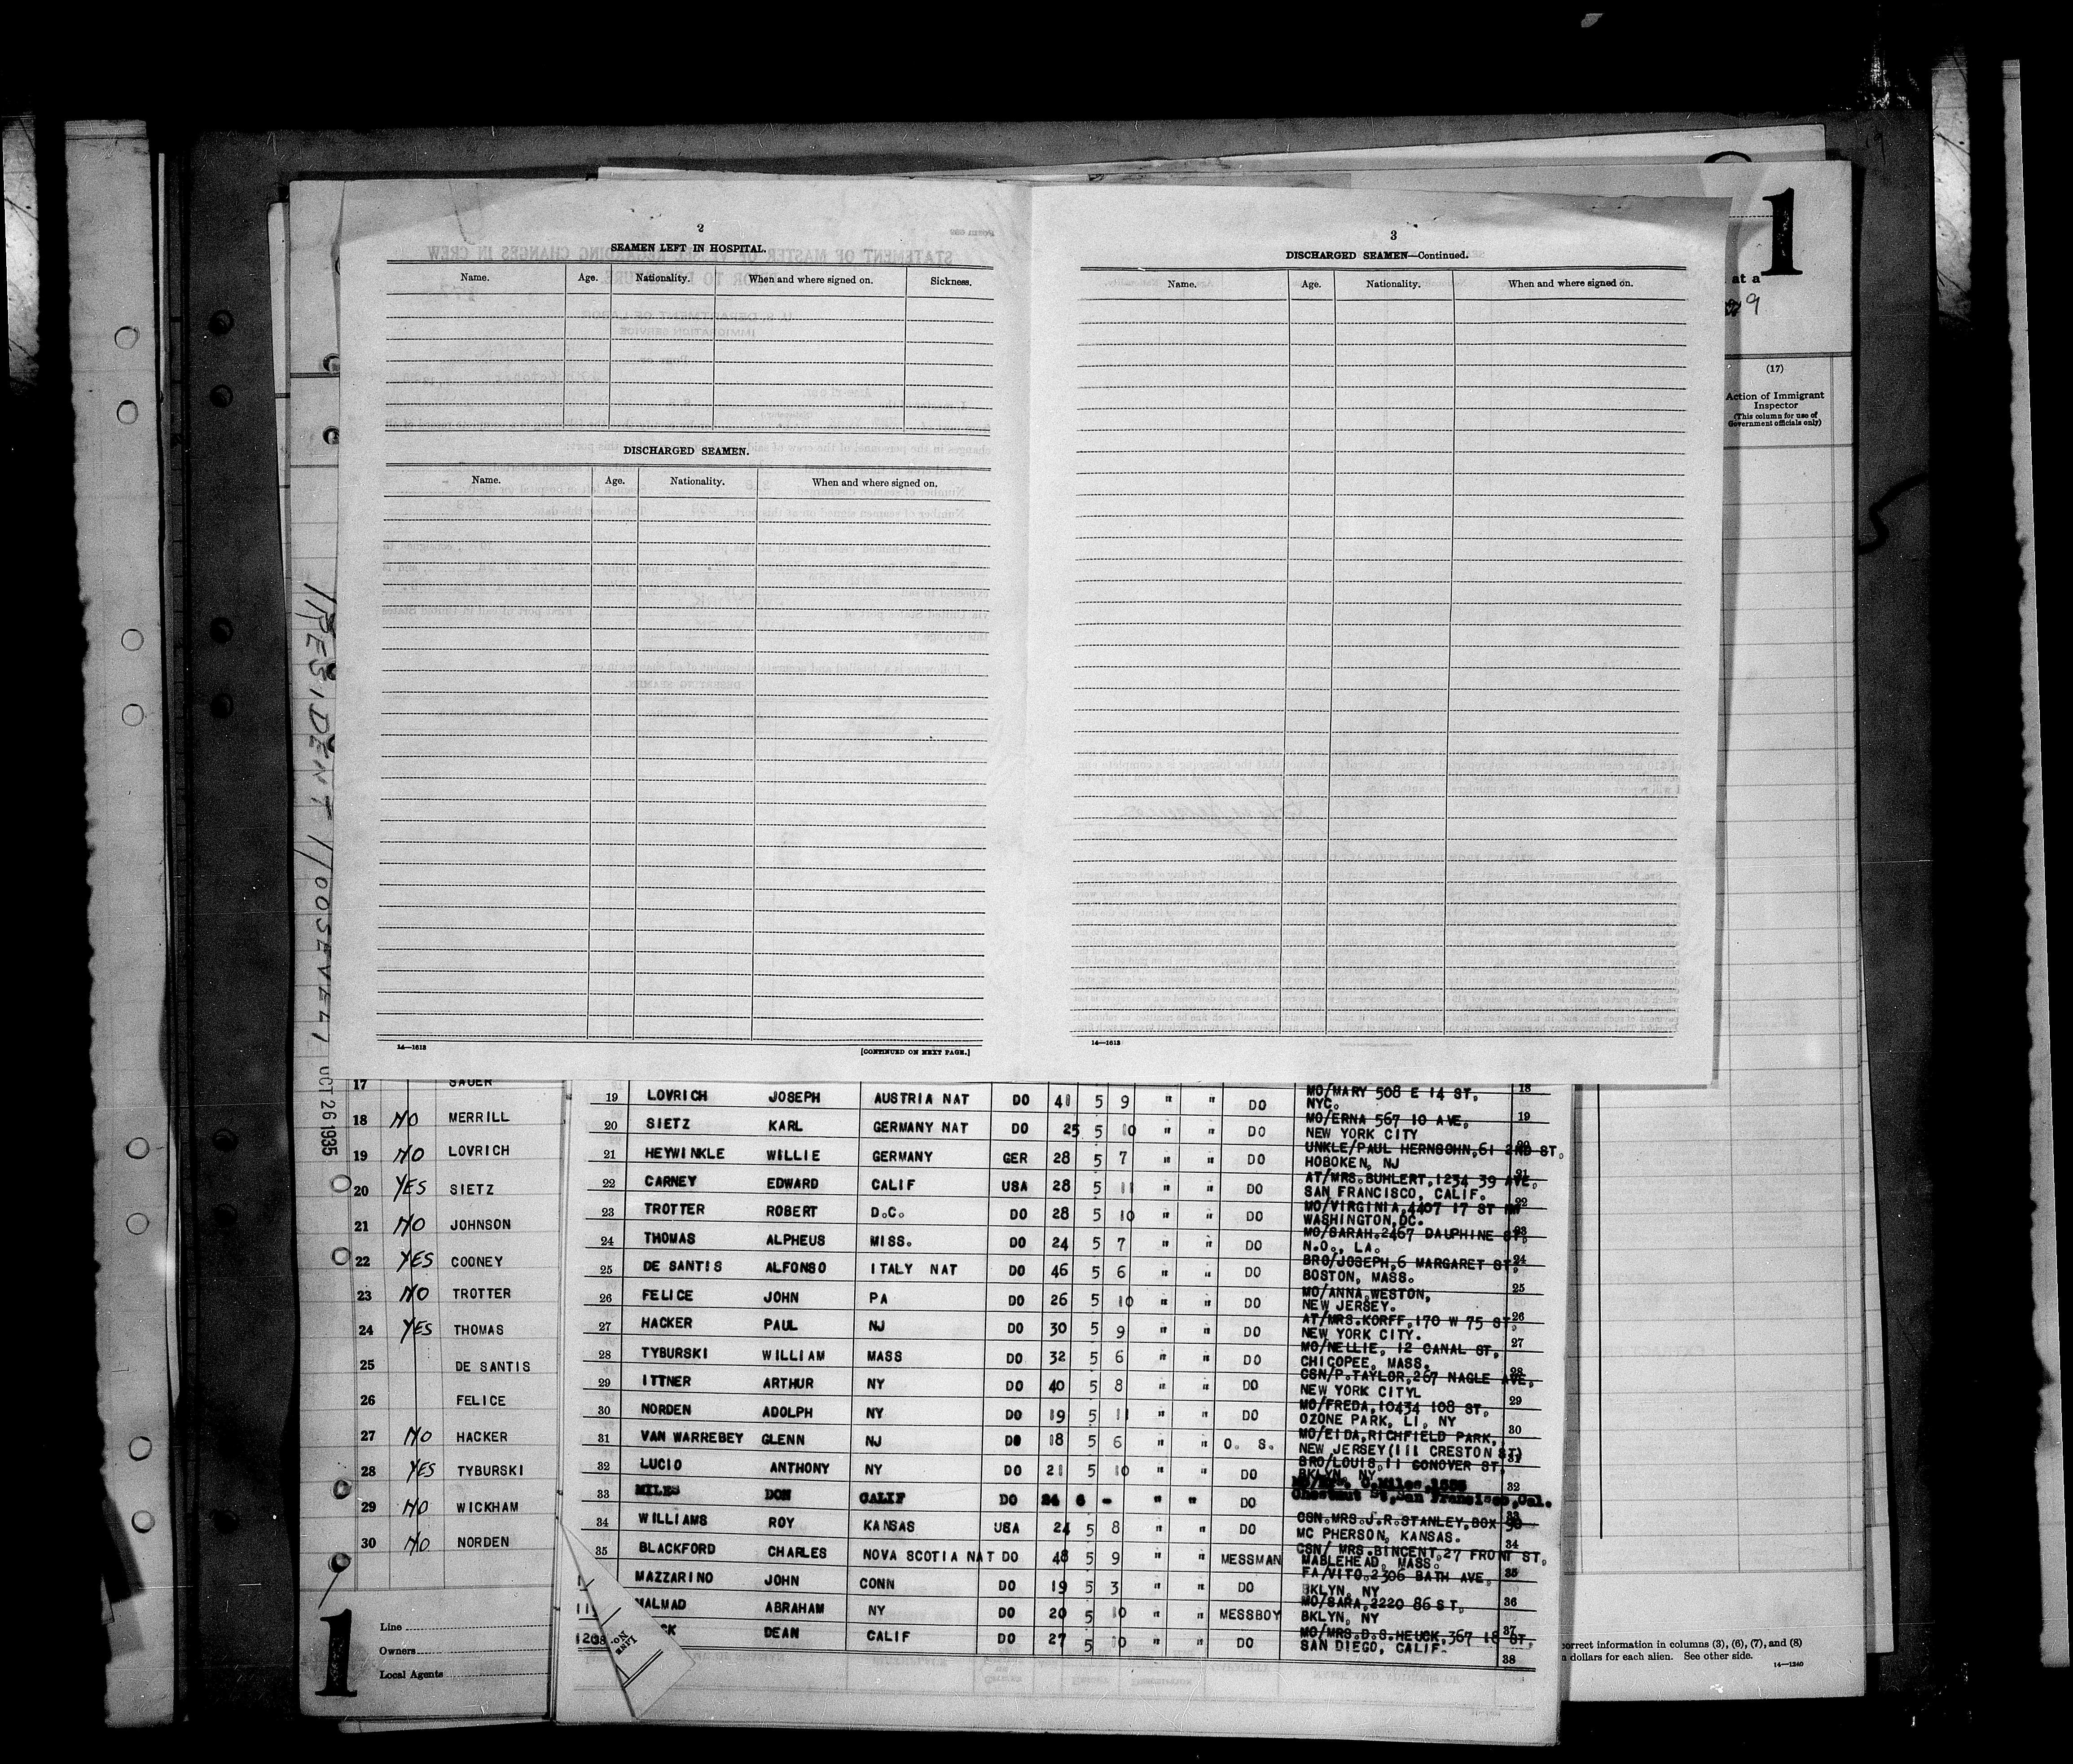 2
SEAMEN LEFT IN HOSPITAL.
Name. Age. Nationality. When and where signed on. Sickness.
DISCHARGED SEAMEN.
Name. Age. Nationality. When and where signed on.
14—1613
[CONTINUED ON NEXT PAGE.]
3
DISCHARGED SEAMEN—Continued.
Name. Age. Nationality. When and where signed on.
14—1613
1
at a
9
(17)
Action of Immigrant
Inspector
(This column for use of
Government officials only)
PRESIDENT ROOSEVELT
OCT 26 1935
17 SAUER
18 NO MERRILL
19 NO LOVRICH
20 YES SIETZ
21 NO JOHNSON
22 YES COONEY
23 NO TROTTER
24 YES THOMAS
25 DE SANTIS
26 FELICE
27 NO HACKER
28 YES TYBURSKI
29 NO WICKHAM
30 NO NORDEN
1
Line
Owners
Local Agents
19 LOVRICH JOSEPH AUSTRIA NAT DO 41 5 9 " " DO MO/MARY 508 E 14 ST. 18
NYC.
20 SIETZ KARL GERMANY NAT DO 25 5 10 " " DO MO/ERNA 567 10 AVE. 19
NEW YORK CITY
21 HEYWINKLE WILLIE GERMANY GER 28 5 7 " " DO UNKLE/PAUL HERNSOHN,61 2ND ST. 20
HOBOKEN, NJ
22 CARNEY EDWARD CALIF USA 28 5 11 " " DO AT/MRS.BUHLERT,1234 39 AVE. 21
SAN FRANCISCO, CALIF.
23 TROTTER ROBERT D.C. DO 28 5 10 " " DO MO/VIRGINIA,4407 17 ST NW 22
WASHINGTON,DC.
24 THOMAS ALPHEUS MISS. DO 24 5 7 " " DO MO/SARAH.2467 DAUPHINE ST. 23
N.O., LA.
25 DE SANTIS ALFONSO ITALY NAT DO 46 5 6 " " DO BRO/JOSEPH,6 MARGARET ST. 24
BOSTON, MASS.
26 FELICE JOHN PA DO 26 5 10 " " DO MO/ANNA,WESTON, 25
NEW JERSEY.
27 HACKER PAUL NJ DO 30 5 9 " " DO AT/MRS.KORFF,170 W 75 ST. 26
NEW YORK CITY.
28 TYBURSKI WILLIAM MASS DO 32 5 6 " " DO MO/NELLIE, 12 CANAL ST. 27
CHICOPEE, MASS.
29 ITTNER ARTHUR NY DO 40 5 8 " " DO CSN/P.TAYLOR,267 NAGLE AVE. 28
NEW YORK CITYL
30 NORDEN ADOLPH NY DO 19 5 11 " " DO MO/FREDA,10434 108 ST. 29
OZONE PARK, LI, NY
31 VAN WARREBEY GLENN NJ DO 18 5 6 " " O. S. MO/EIDA,RICHFIELD PARK, 30
NEW JERSEY(111 CRESTON ST)
32 LUCIO ANTHONY NY DO 21 5 10 " " DO BRO/LOUIS,11 CONOVER ST. 31
BKLYN, NY
33 MILES DON CALIF DO 24 6 - " " DO Miles,1655 32
Chestnut St,San Francisco,Cal.
34 WILLIAMS ROY KANSAS USA 24 5 8 " " DO CSN.MRS.J.R.STANLEY,BOX 50 33
MC PHERSON, KANSAS.
35 BLACKFORD CHARLES NOVA SCOTIA NAT DO 48 5 9 " " MESSMAN CSN/ MRS.BINCENT,27 FRONT ST. 34
MABLEHEAD, MASS.
MAZZARINO JOHN CONN DO 19 5 3 " " DO FA/VITO.2306 BATH AVE. 35
BKLYN, NY
MALMAD ABRAHAM NY DO 20 5 10 " " MESSBOY MO/SARA,2220 86 ST. 36
BKLYN, NY
CK DEAN CALIF DO 27 5 10 " " DO MO/MRS.D.S.HEUCK,367 18 ST. 37
SAN DIEGO, CALIF. 38
LINE
No.
correct information in columns (3), (6), (7), and (8)
dollars for each alien. See other side.
14—1240